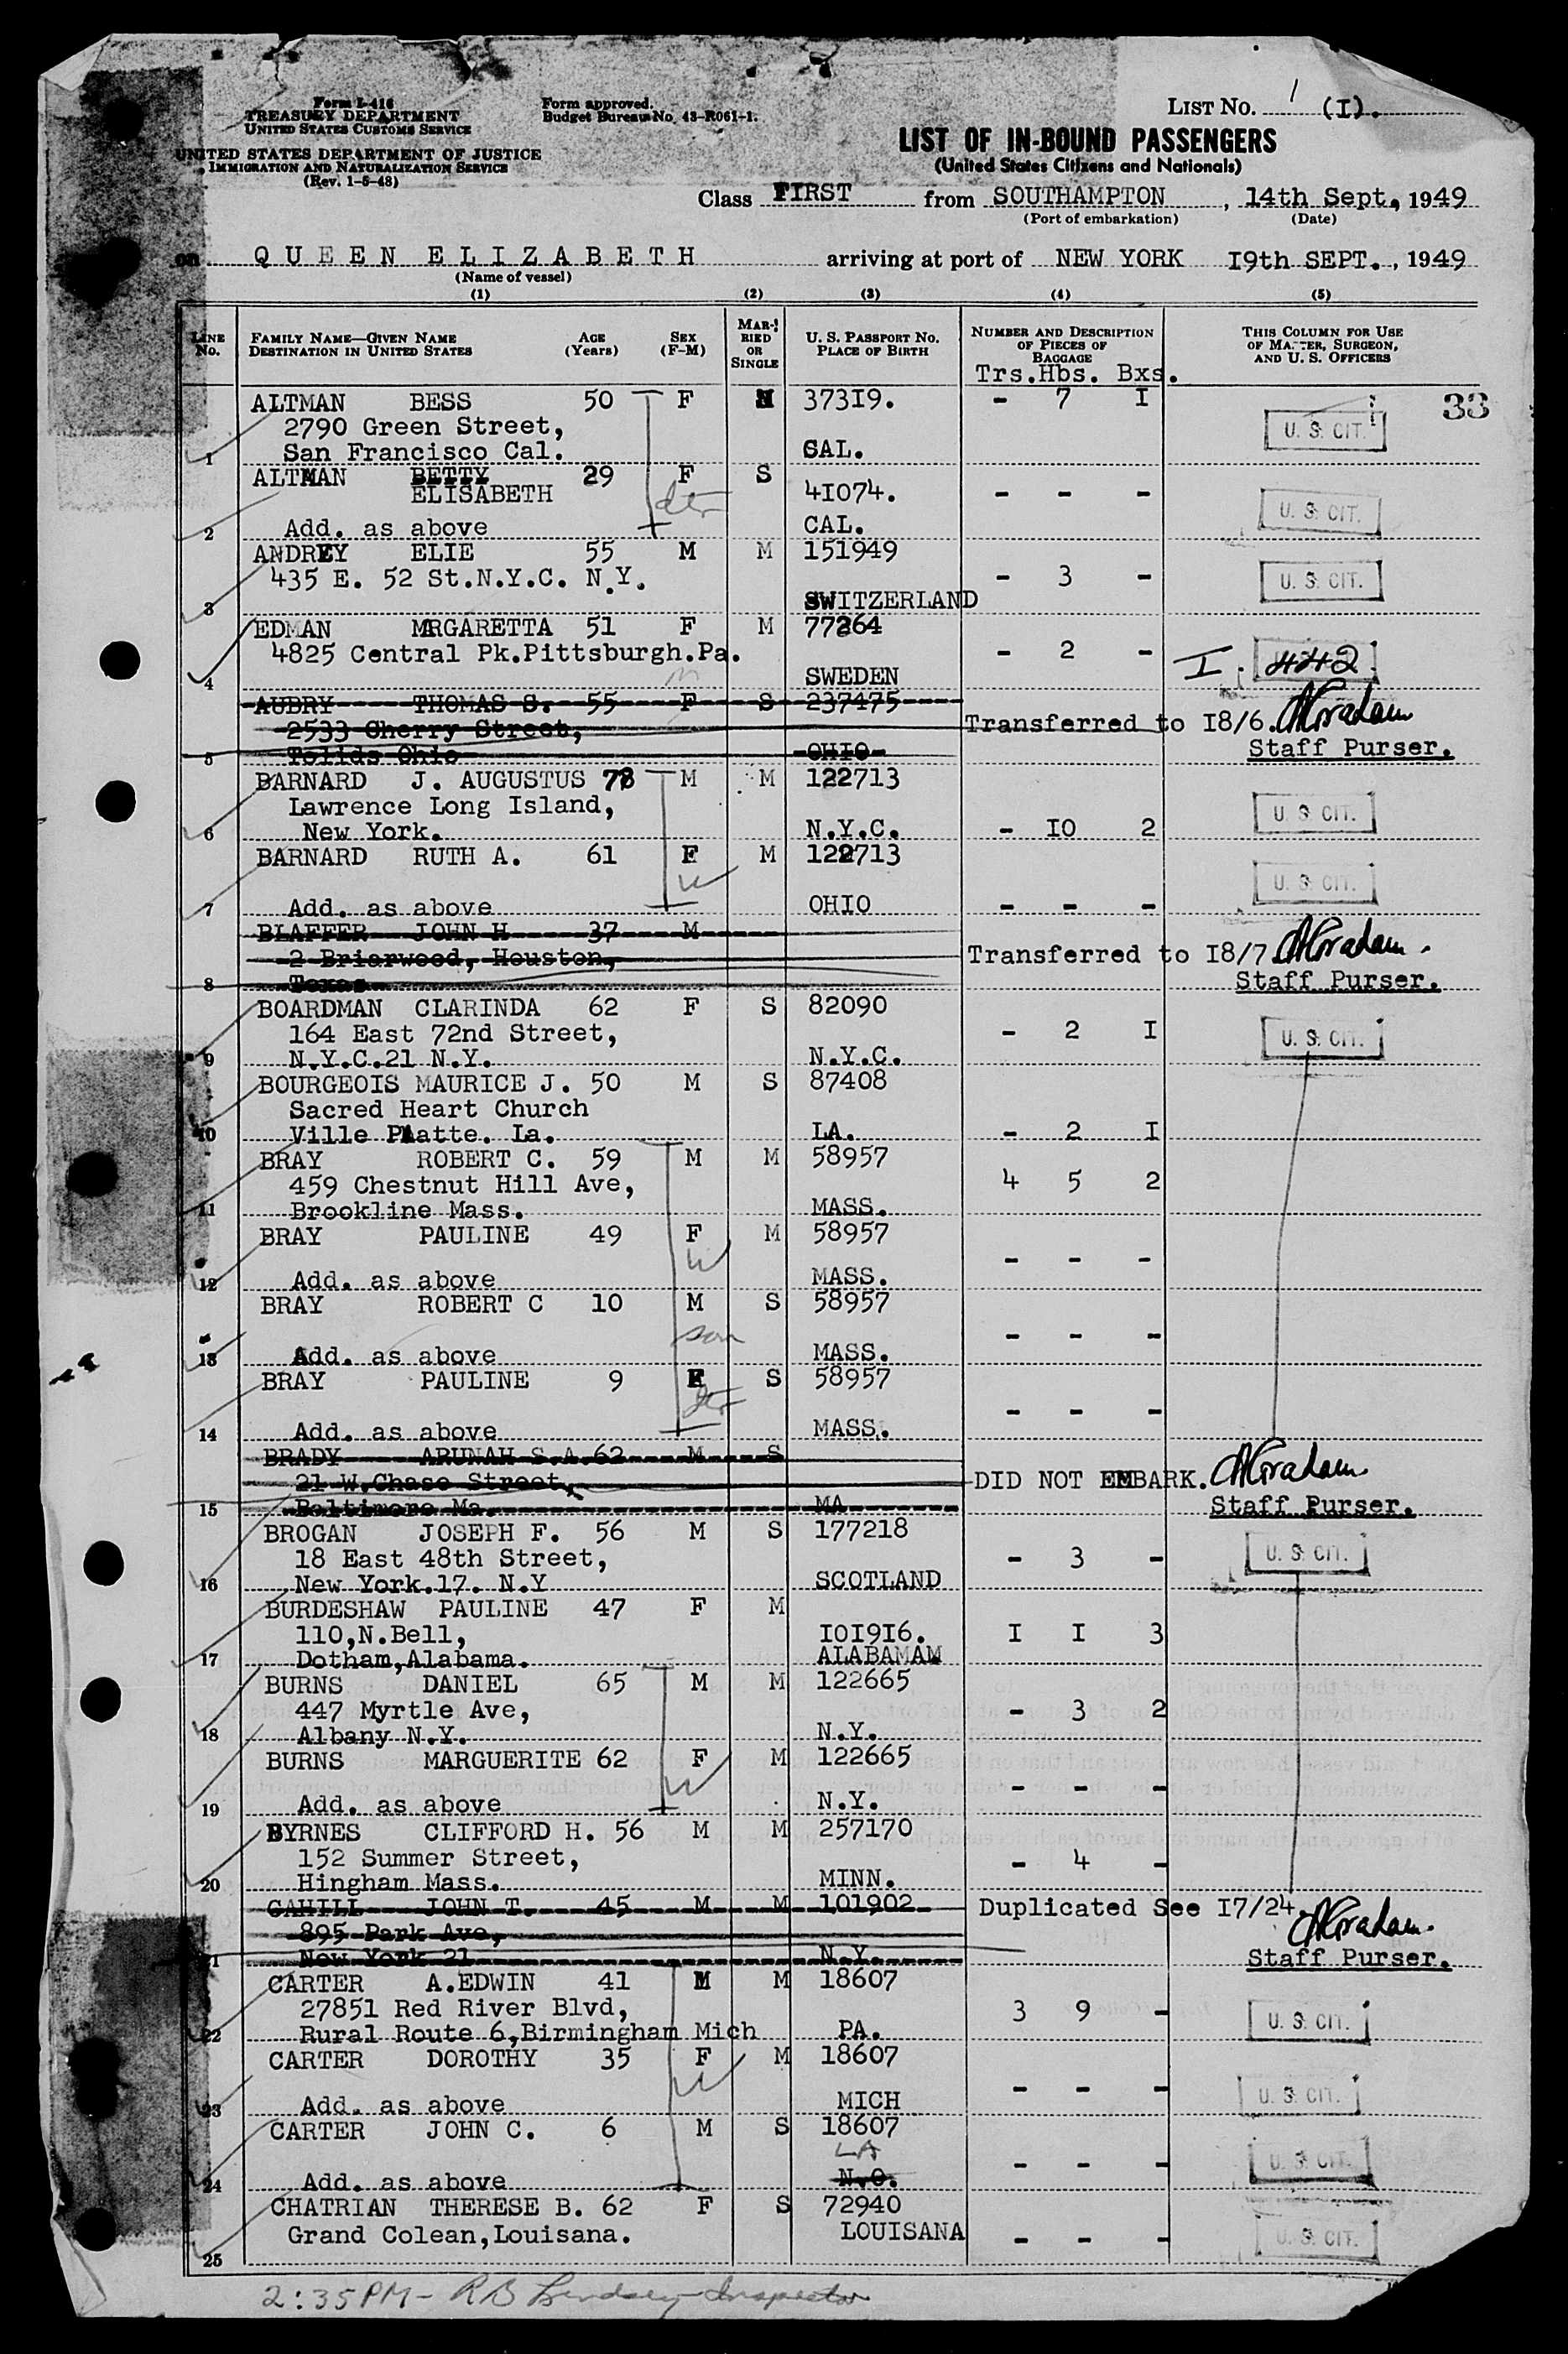 Form I-416
TREASURY DEPARTMENT
UNITED STATES CUSTOMS SERVICE
Form approved.
Budget Bureau No. 43-R061-1.
LIST NO. 1 (I).
UNITED STATES DEPARTMENT OF JUSTICE
IMMIGRATION AND NATURALIZATION SERVICE
(Rev. 1-5-48)
LIST OF IN-BOUND PASSENGERS
(United States Citizens and Nationals)
Class FIRST from SOUTHAMPTON, 14th Sept., 1949
(Port of embarkation) (Date)
on QUEEN ELIZABETH arriving at port of NEW YORK I9th SEPT., 1949
(Name of vessel)
(1) (2) (3) (4) (5)
LINE No. FAMILY NAME—GIVEN NAME DESTINATION IN UNITED STATES AGE (Years) SEX (F-M) MARRIED OR SINGLE U. S. PASSPORT NO. PLACE OF BIRTH NUMBER AND DESCRIPTION OF PIECES OF BAGGAGE THIS COLUMN FOR USE OF MASTER, SURGEON, AND U. S. OFFICERS
Trs. Hbs. Bxs.
33
ALTMAN BESS 50 F 373I9. - 7 I
2790 Green Street, U. S. CIT.
1 San Francisco Cal. CAL.
ALTMAN BETTY 29 F S
ELISABETH dtr 4I074. - - - U. S. CIT.
2 Add. as above CAL.
ANDREY ELIE 55 M M 151949
435 E. 52 St.N.Y.C. N.Y. - 3 - U. S. CIT.
3 SWITZERLAND
EDMAN MARGARETTA 51 F M 77264
4825 Central Pk.Pittsburgh.Pa. - 2 - I. 442
4 SWEDEN
AUBRY THOMAS S. 55 F M S 237475
2533 Cherry Street, Transferred to I8/6. AGraham
5 Tolids Ohio OHIO Staff Purser.
BARNARD J. AUGUSTUS 78 M M 122713
Lawrence Long Island, U. S. CIT.
6 New York. N.Y.C. - IO 2
BARNARD RUTH A. 61 F M 122713
w U. S. CIT.
7 Add. as above OHIO - - -
BLAFFER JOHN H 37 M
2 Briarwood, Houston, Transferred to I8/7 AGraham.
8 Texas Staff Purser.
BOARDMAN CLARINDA 62 F S 82090
164 East 72nd Street, - 2 I U. S. CIT.
9 N.Y.C.21 N.Y. N.Y.C.
BOURGEOIS MAURICE J. 50 M S 87408
Sacred Heart Church
10 Ville Platte. La. LA. - 2 I
BRAY ROBERT C. 59 M M 58957
459 Chestnut Hill Ave, 4 5 2
11 Brookline Mass. MASS.
BRAY PAULINE 49 F M 58957
w - - -
12 Add. as above MASS.
BRAY ROBERT C 10 M S 58957
son - - -
13 Add. as above MASS.
BRAY PAULINE 9 F S 58957
dtr - - -
14 Add. as above MASS.
BRADY ARUNAH S.A. 62 M S
21 W.Chase Street, DID NOT EMBARK. AGraham
15 Baltimore Ma. MA Staff Purser.
BROGAN JOSEPH F. 56 M S 177218
18 East 48th Street, - 3 - U. S. CIT.
16 New York.17. N.Y SCOTLAND
BURDESHAW PAULINE 47 F M
110,N.Bell, IOI9I6. I I 3
17 Dotham,Alabama. ALABAMAM
BURNS DANIEL 65 M M 122665
447 Myrtle Ave, - 3 2
18 Albany N.Y. N.Y.
BURNS MARGUERITE 62 F M 122665
w - - -
19 Add. as above N.Y.
BYRNES CLIFFORD H. 56 M M 257170
152 Summer Street, - 4 -
20 Hingham Mass. MINN.
CAHILL JOHN T. 45 M M 101902 Duplicated See I7/24.
895 Park Ave, AGraham.
21 New York 21 N.Y. Staff Purser.
CARTER A.EDWIN 41 M M 18607
27851 Red River Blvd, 3 9 - U. S. CIT.
22 Rural Route 6,Birmingham Mich PA.
CARTER DOROTHY 35 F M 18607
w - - - U. S. CIT.
23 Add. as above MICH
CARTER JOHN C. 6 M S 18607
LA - - - U. S. CIT.
24 Add. as above N.O.
CHATRIAN THERESE B. 62 F S 72940
Grand Colean,Louisana. LOUISANA - - - U. S. CIT.
25
2:35 PM - R B Lindsey Inspector